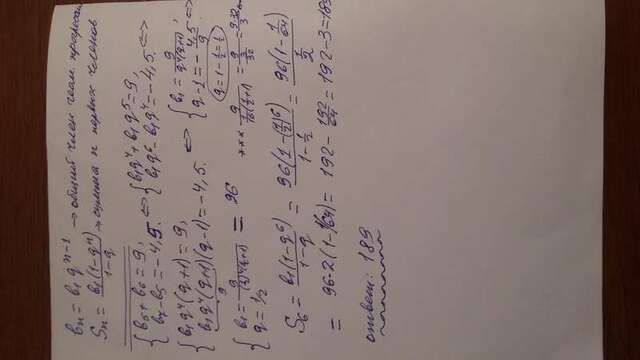 bₙ = b₁qⁿ⁻¹ → общий член геом. прогрессии
Sₙ = b₁(1-qⁿ)/(1-q) → сумма n первых членов
{ b₅+b₆=9, b₇-b₅=-4,5. <=> { b₁q⁴+b₁q⁵=9, b₁q⁶-b₁q⁴=-4,5. <=>
{ b₁q⁴(q+1)=9, b₁q⁴(q+1)(q-1)=-4,5. <=> { b₁=9/(q⁴(q+1)), q-1=-4,5/9 <=>
9
q=1-1/2=1/2
{ b₁=9/((1/2)⁴(1/2+1)) = 96
q=1/2
S₆ = b₁(1-q⁶)/(1-q) = 96(1-(1/2)⁶)/(1-1/2) = 96(1-1/64)/(1/2)
= 96·2(1-1/64) = 192-192/64 = 192-3=189
ответ: 189